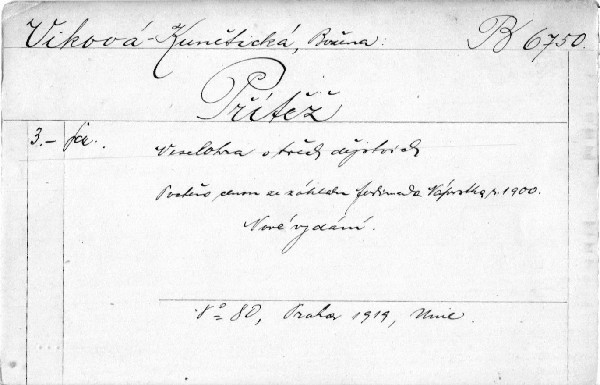 Viková-Kunětická, Božena: B 6750.
Přítěž
3.– fa.
Veselohra o třech dějstvích
Poctěno cenou ze základu Ferdinanda Náprstka r. 1900.
Nové vydání.
8° 80, Praha 1919, Unie.